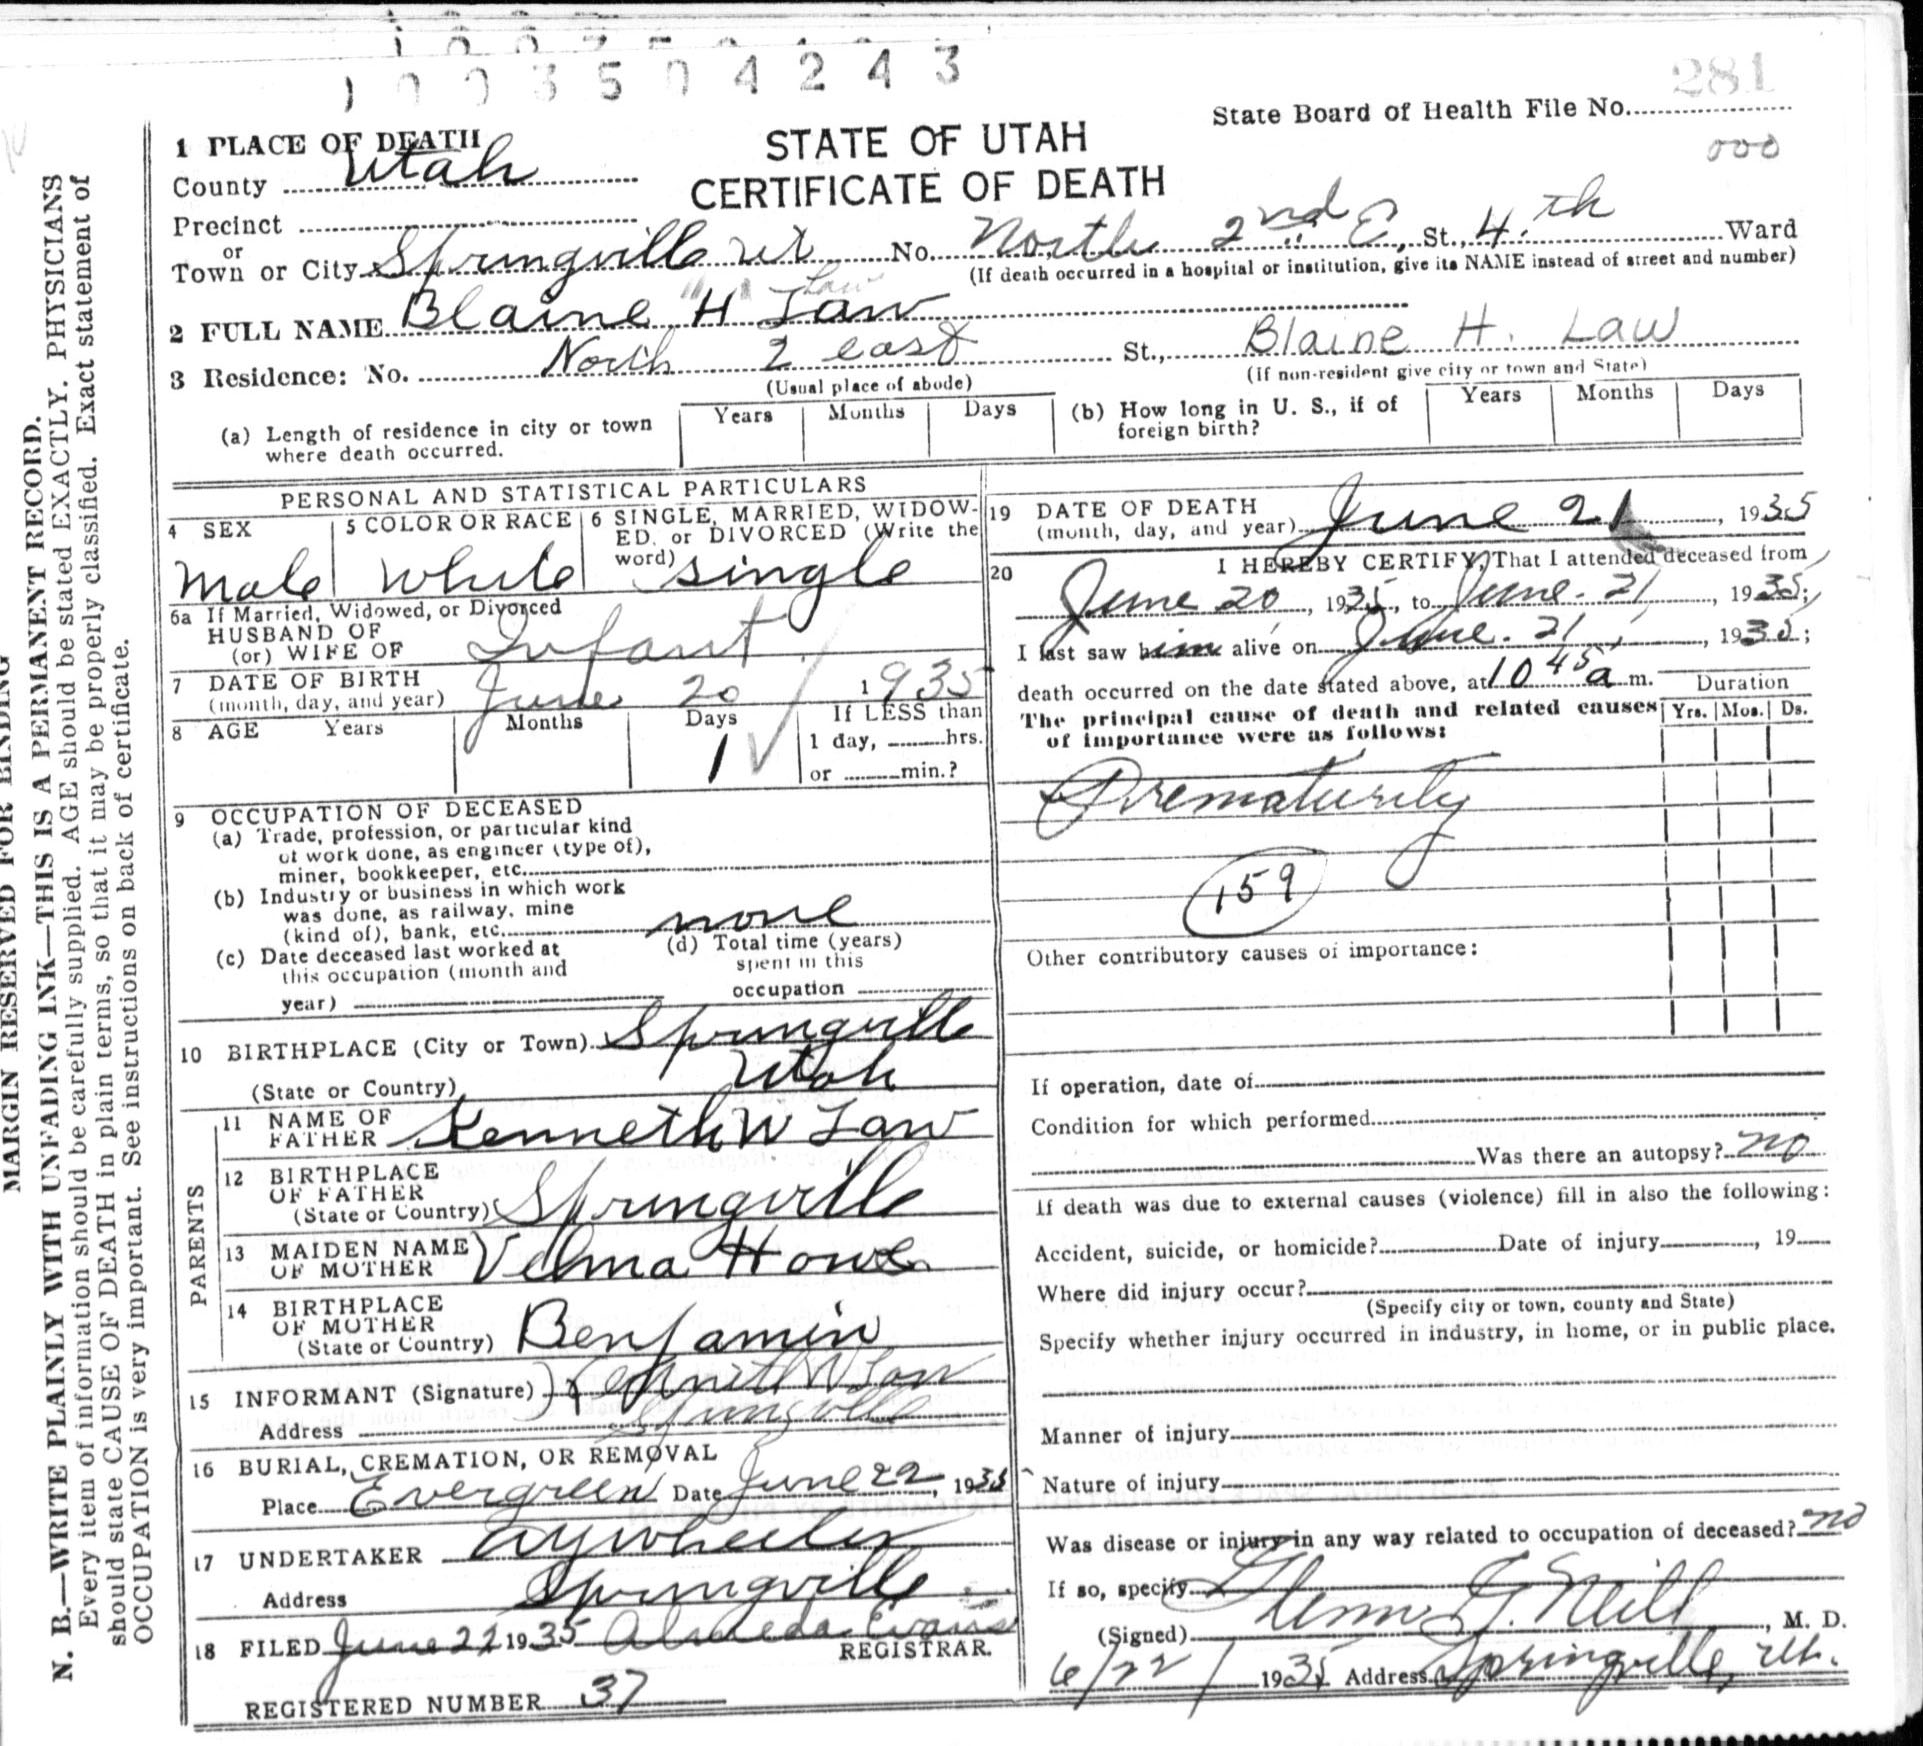 1003504243
281
State Board of Health File No.
000
1 PLACE OF DEATH
STATE OF UTAH
CERTIFICATE OF DEATH
County Utah
Precinct
or
Town or City Springville Ut No. North 2nd E, St., 4th Ward
(If death occurred in a hospital or institution, give its NAME instead of street and number)
Law
2 FULL NAME Blaine H Law
3 Residence: No. North 2 east St., Blaine H. Law
(Usual place of abode)
(If non-resident give city or town and State)
(a) Length of residence in city or town where death occurred.
Years Months Days
(b) How long in U. S., if of foreign birth?
Years Months Days
MARGIN RESERVED FOR BINDING
N. B.—WRITE PLAINLY WITH UNFADING INK—THIS IS A PERMANENT RECORD.
Every item of information should be carefully supplied. AGE should be stated EXACTLY. PHYSICIANS
should state CAUSE OF DEATH in plain terms, so that it may be properly classified. Exact statement of
OCCUPATION is very important. See instructions on back of certificate.
PERSONAL AND STATISTICAL PARTICULARS
4 SEX
Male
5 COLOR OR RACE
White
6 SINGLE, MARRIED, WIDOW-
ED, or DIVORCED (Write the
word) single
6a If Married, Widowed, or Divorced
HUSBAND OF
(or) WIFE OF Infant
7 DATE OF BIRTH
(month, day, and year) June 20 1935
8 AGE Years Months Days
1
If LESS than
1 day, hrs.
or min.?
9 OCCUPATION OF DECEASED
(a) Trade, profession, or particular kind
of work done, as engineer (type of),
miner, bookkeeper, etc.
(b) Industry or business in which work
was done, as railway, mine
(kind of), bank, etc. none
(c) Date deceased last worked at
this occupation (month and
year)
(d) Total time (years)
spent in this
occupation
10 BIRTHPLACE (City or Town) Springville
(State or Country) Utah
PARENTS
11 NAME OF
FATHER Kenneth W Law
12 BIRTHPLACE
OF FATHER
(State or Country) Springville
13 MAIDEN NAME
OF MOTHER Velma Howe
14 BIRTHPLACE
OF MOTHER
(State or Country) Benjamin
15 INFORMANT (Signature) Kenneth W Law
Address Springville
16 BURIAL, CREMATION, OR REMOVAL
Place Evergreen Date June 22, 1935
17 UNDERTAKER A Y Wheeler
Address Springville
18 FILED June 22 1935 Almeda Evans
REGISTRAR.
REGISTERED NUMBER 37
19 DATE OF DEATH
(month, day, and year) June 21, 1935
20 I HEREBY CERTIFY, That I attended deceased from
June 20, 1935, to June 21, 1935;
I last saw him alive on June 21, 1935;
death occurred on the date stated above, at 10 45 a m.
The principal cause of death and related causes
of importance were as follows:
Duration
Yrs. Mos. Ds.
Prematurity
159
Other contributory causes of importance:
If operation, date of
Condition for which performed
Was there an autopsy? no
If death was due to external causes (violence) fill in also the following:
Accident, suicide, or homicide? Date of injury, 19
Where did injury occur?
(Specify city or town, county and State)
Specify whether injury occurred in industry, in home, or in public place.
Manner of injury
Nature of injury
Was disease or injury in any way related to occupation of deceased? no
If so, specify
(Signed) Glenn J. Neill, M. D.
6/22/ 1935 Address Springville, Ut.